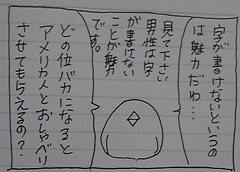 字が書けないというの
は魅力だわ…
見て下さい
男性は字
が書けない
ことが魅力
です。
どの位バカになると
アメリカ人とおしゃべり
させてもらえるの?